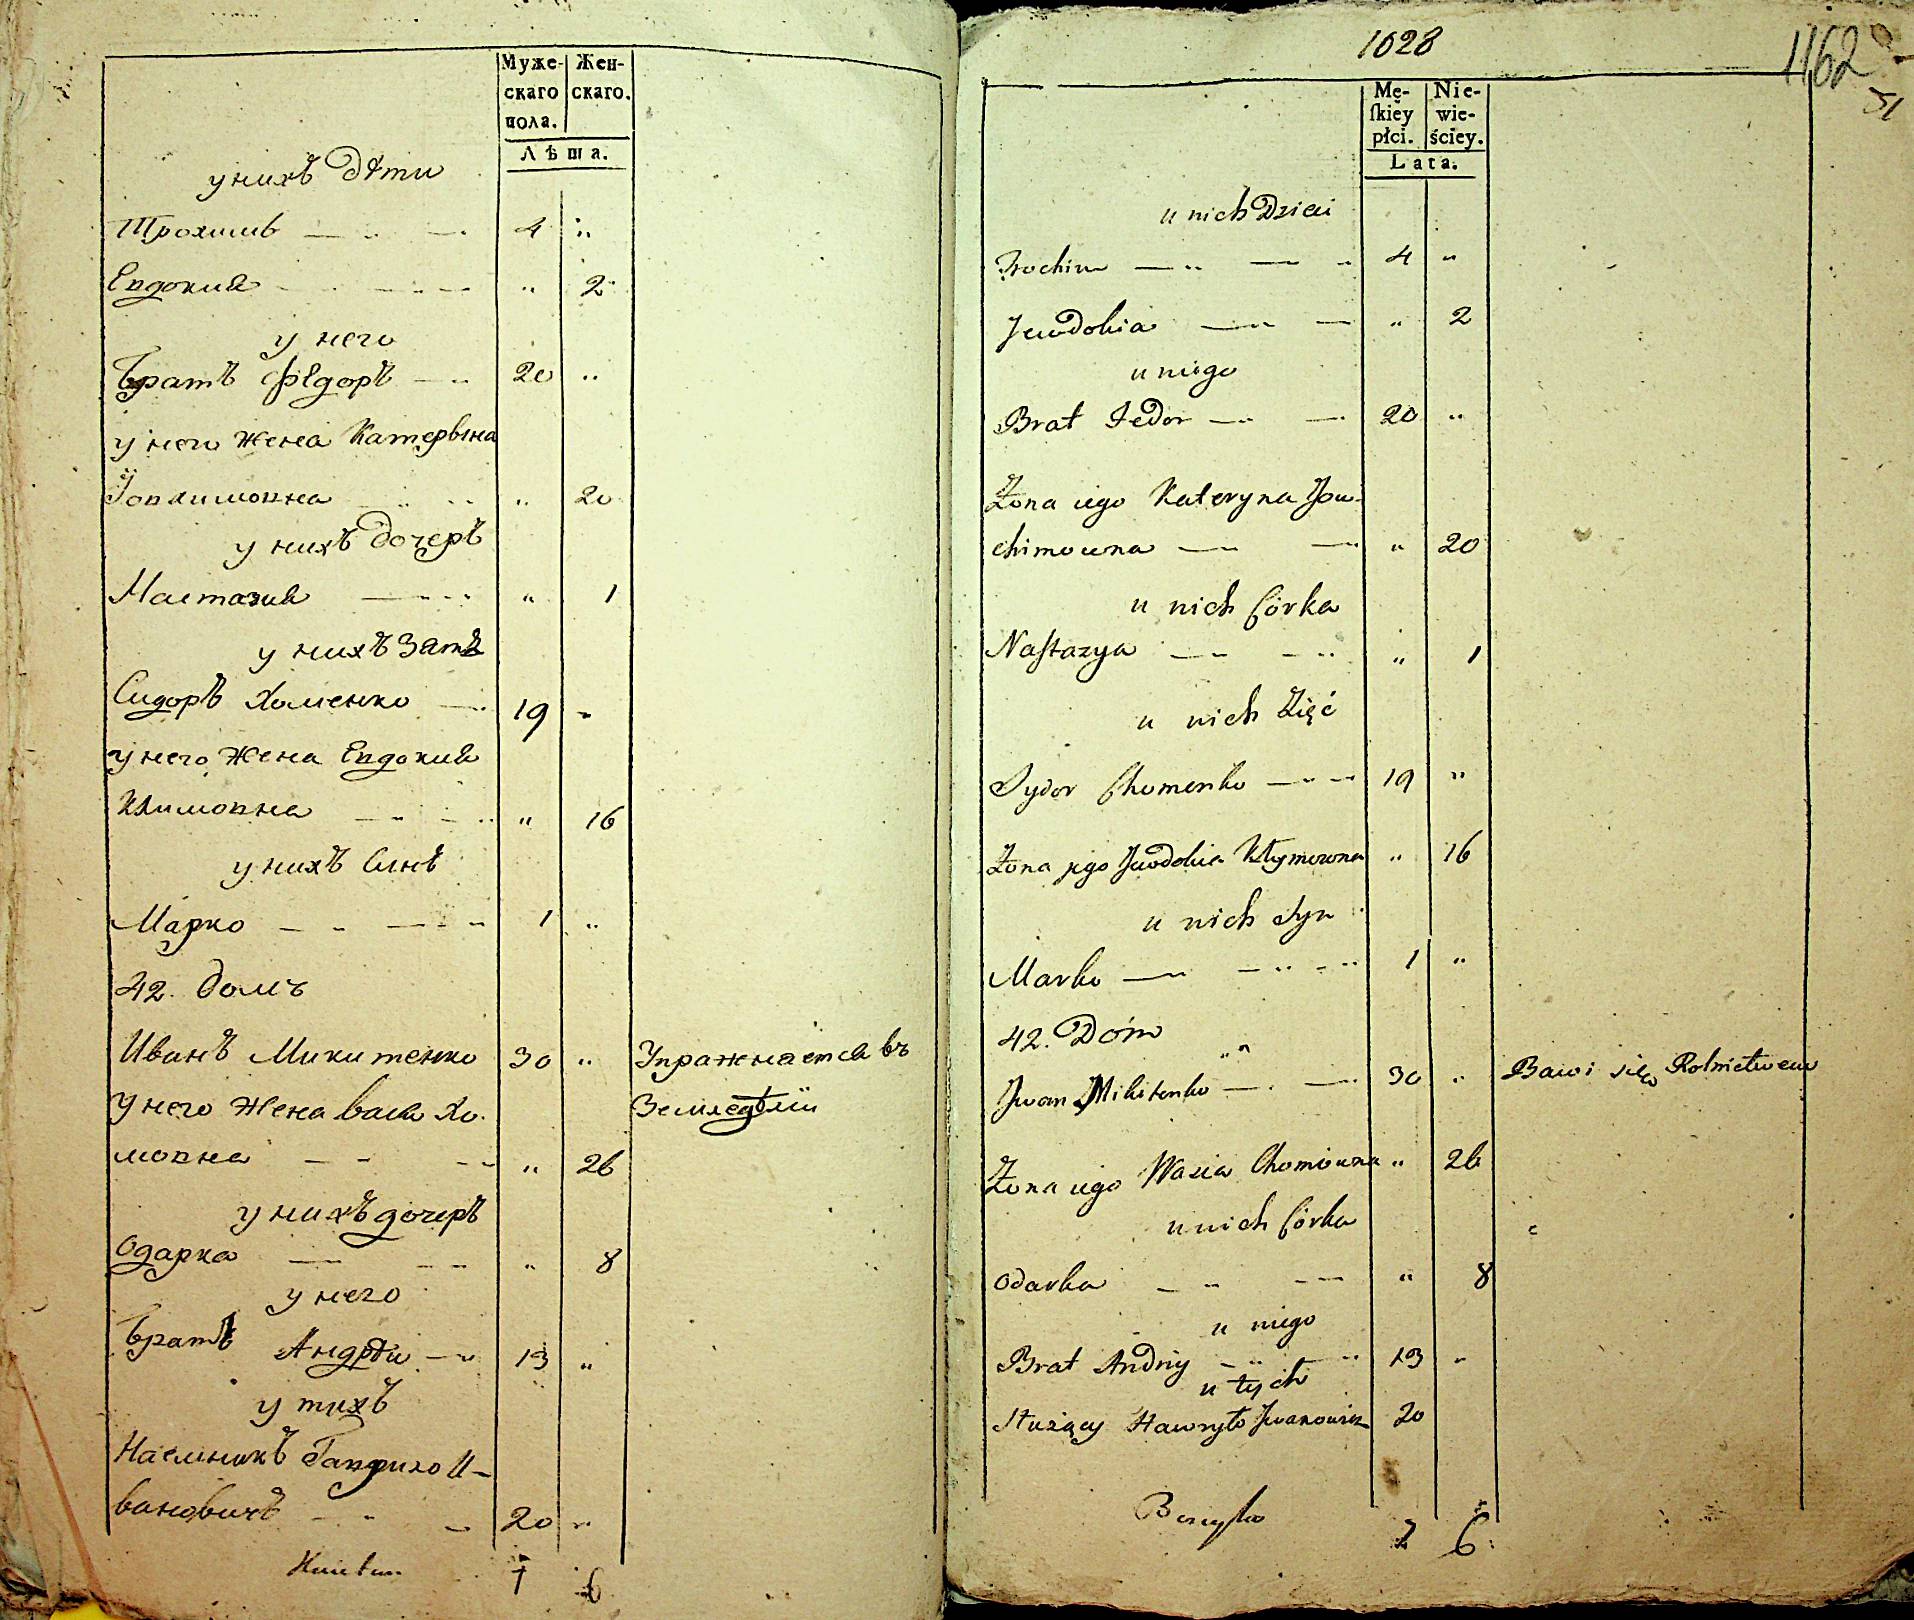 Муже-
скаго
пола.
Жен-
скаго.
Лѣта.
у нихъ Дѣти
Трохимъ 4 "
Евдокия " 2
у него
Братъ Федоръ 20 "
у него жена Катерына
Іовхимовна " 20
у нихъ дочеръ
Настазия " 1
у нихъ Зять
Сидоръ Хоменко 19 "
у него жена Евдокия
Климовна " 16
у нихъ Синъ
Марко 1 "
42. домъ
Иванъ Микитенко 30 " Упражнается въ
у него жена Васа Хо- Земледѣлии
мовна " 26
у нихъ дочеръ
Одарка " 8
у него
Братъ Андрѣи 13 "
у тихъ
Наемникъ Гаврило И-
вановичъ 20 "
7 6
1028
1162
51
Mę-
ſkiéy
płci.
Nie-
wie-
ściey.
Lata.
u nich Dzieci
Trochim 4 "
Jewdokia " 2
u niego
Brat Fedor 20 "
Żona iego Kateryna Jow-
chimowna " 20
u nich Córka
Naſtazya " 1
u nich Zięć
Sydor Chomenko 19 "
Żona jego Jewdokia Kłymowna " 16
u nich Syn
Marko 1 "
42. Dóm
Jwan Mikitenko 30 " Bawi się Rolnictwem
Żona iego Wasia Chomówna " 26
u nich Córka
Odarka " 8
u niego
Brat Andriy 13 "
u tych
Służący Hawryło Jwanowicz 20
7 6